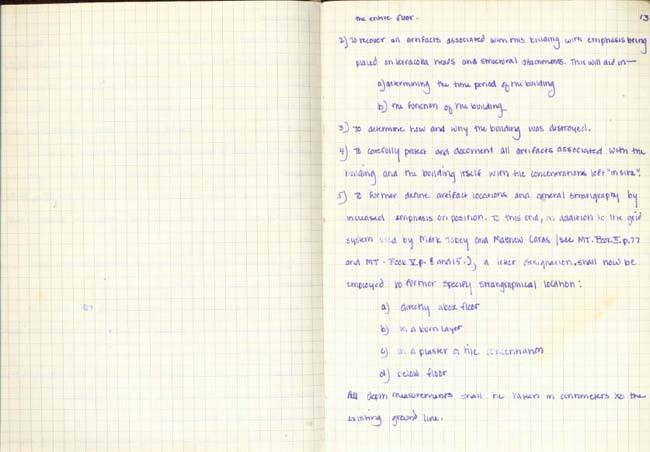 13
the entire floor.
2) To recover all artifacts associated with this building with emphasis being
placed on terracotta heads and structural attachments. This will aid in—
a) determining the time period of the building
b) the function of the building
3) To determine how and why the building was destroyed.
4) To carefully protect and document all artifacts associated with the
building and the building itself with tile concentrations left "in situ".
5) To further define artifact locations and general stratigraphy by
increased emphasis on position. To this end, in addition to the grid
system used by Mark Tobey and Mathew (see MT. Book II p.77
and MT. Book V p. 8 and 15.), a letter designation, shall now be
employed to further specify stratigraphical location:
a) directly above floor
b) in a burn layer
c) in a plaster or tile concentration
d) below floor
All depth measurements shall be taken in centimeters to the
existing ground line.